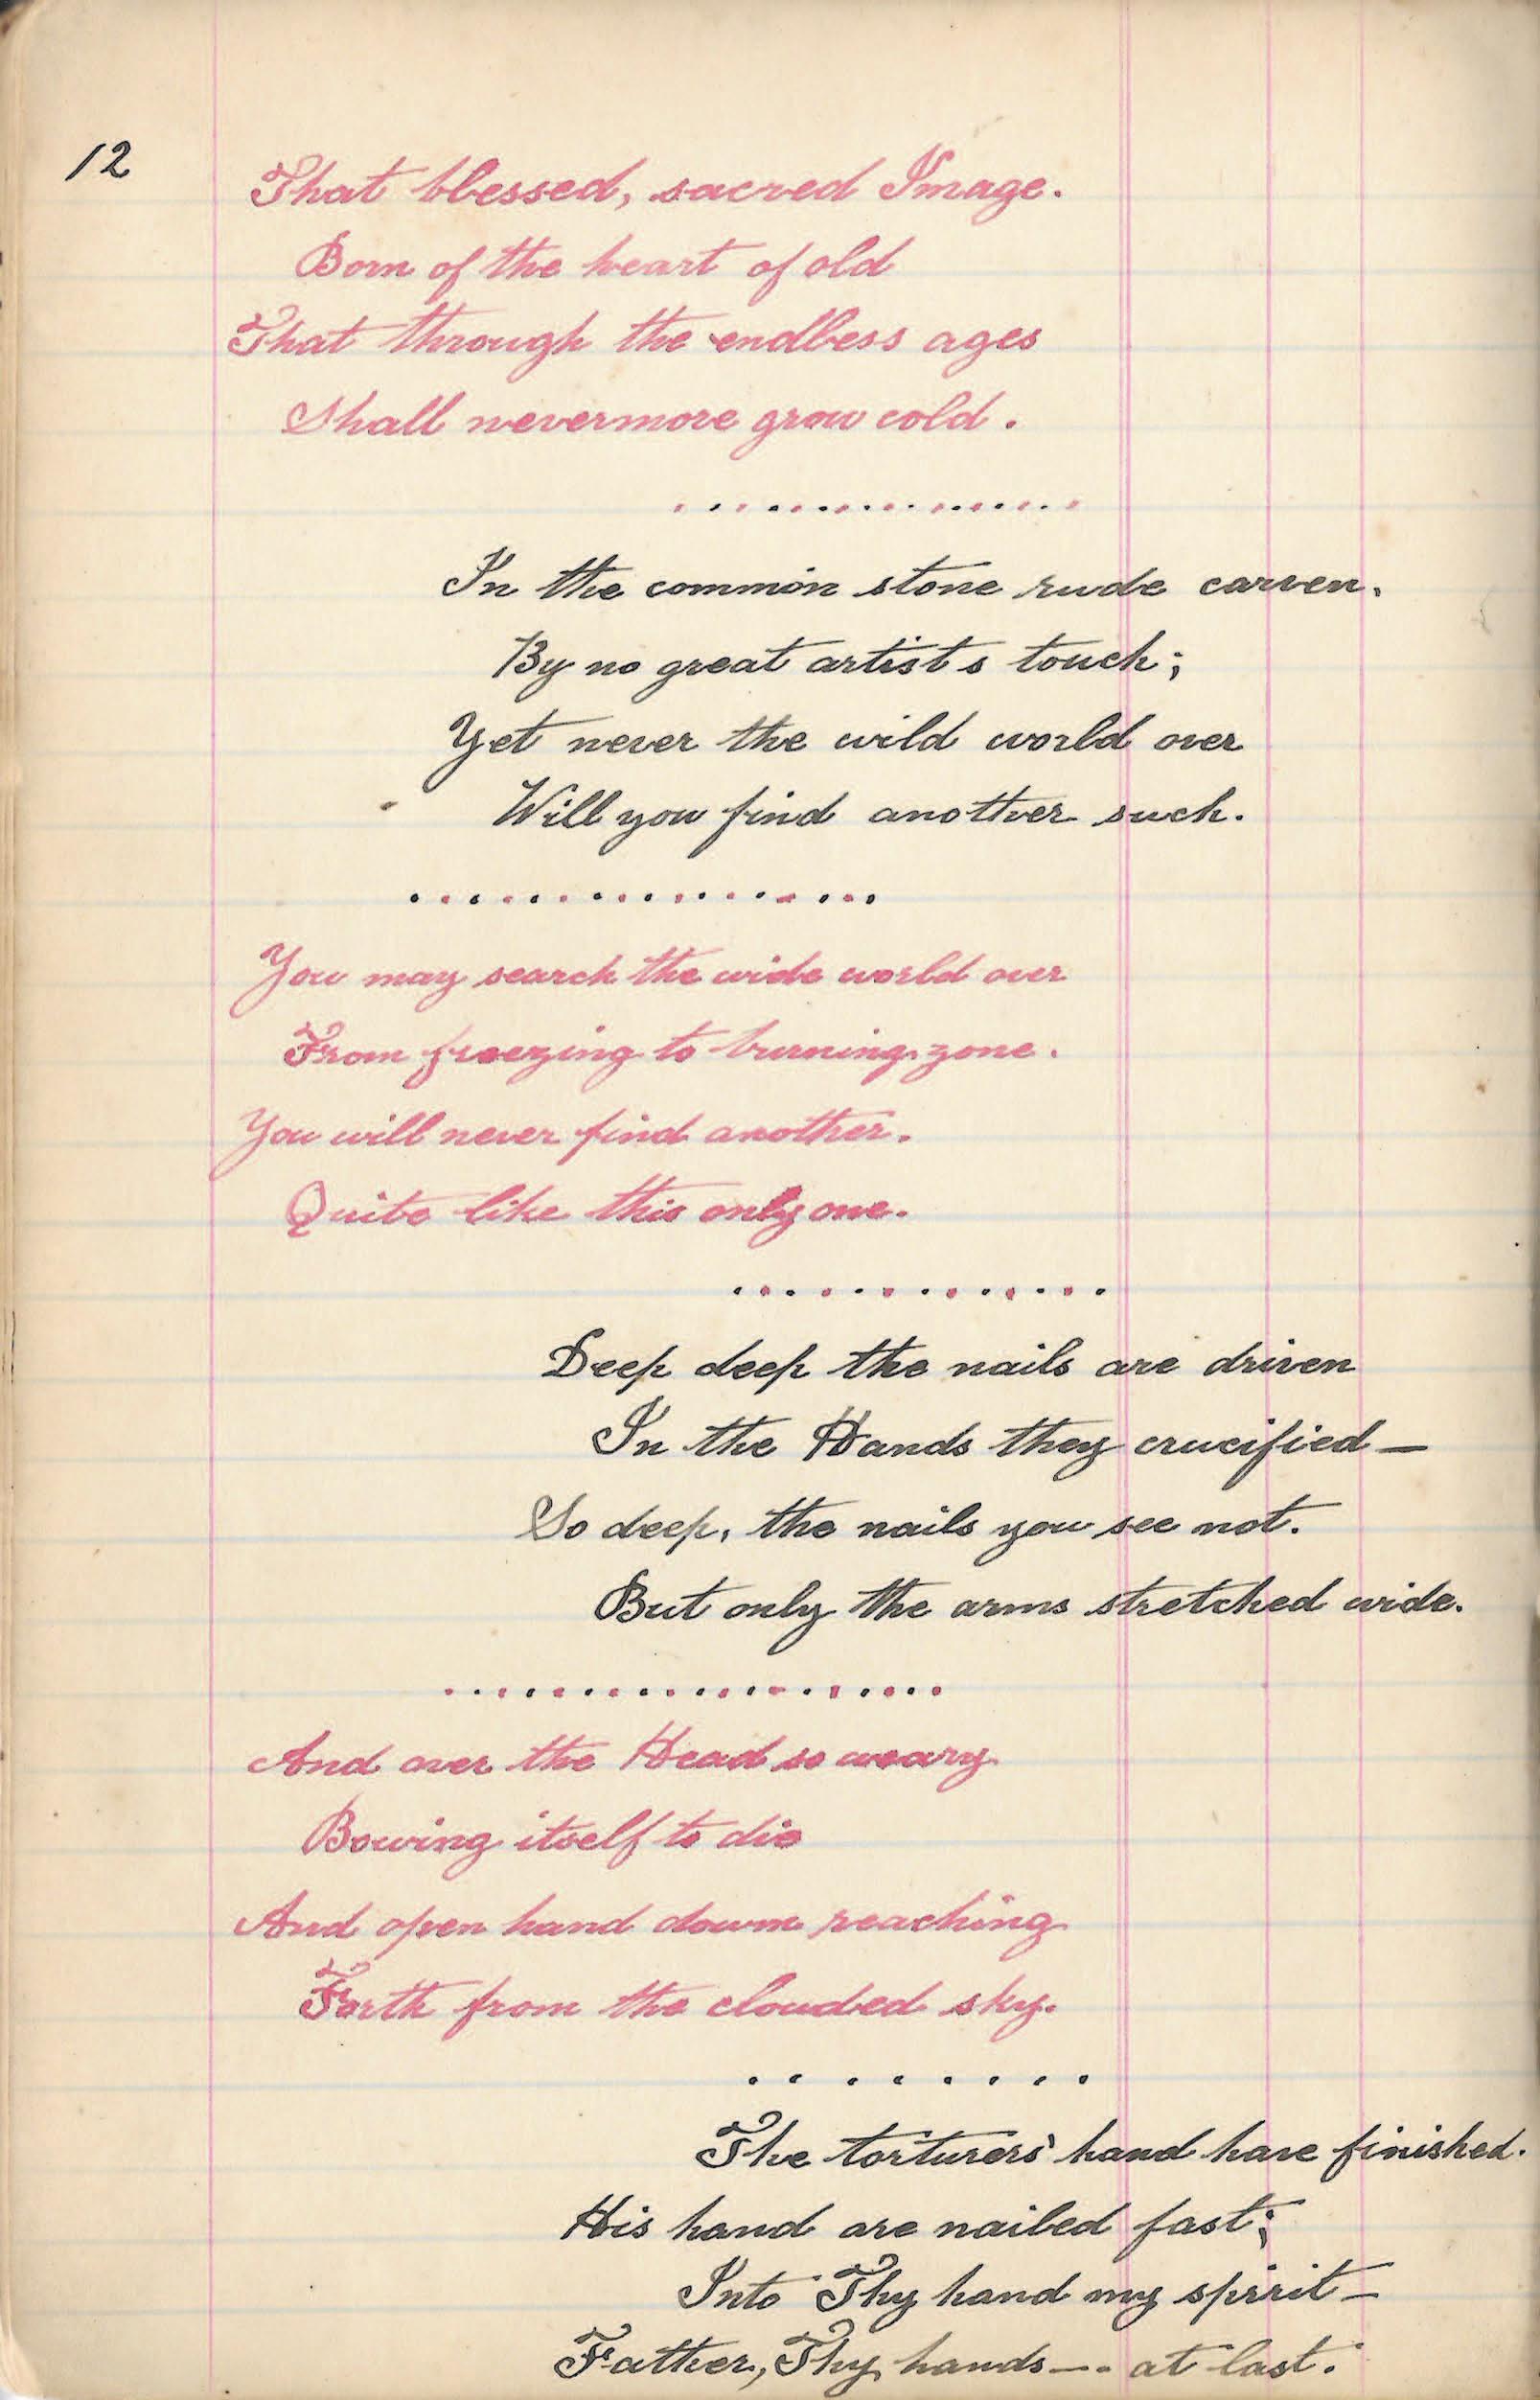 12
That blessed, sacred Image.
Born of the heart of old
That through the endless ages
Shall nevermore grow cold.
................
In the common stone rude carven.
By no great artists touch;
Yet never the wild world over
Will you find another such.
.................
You may search the wide world over
From freezing to burning zone.
You will never find another.
Quite like this only one.
.............
Deep deep the nails are driven
In the Hands they crucified—
So deep, the nails you see not.
But only the arms stretched wide.
..................
And over the Head so weary
Bowing itself to die
And open hand down reaching
Forth from the clouded sky.
........
The torturers' hand have finished.
His hand are nailed fast;
Into Thy hand my spirit—
Father, Thy hands—. at last.